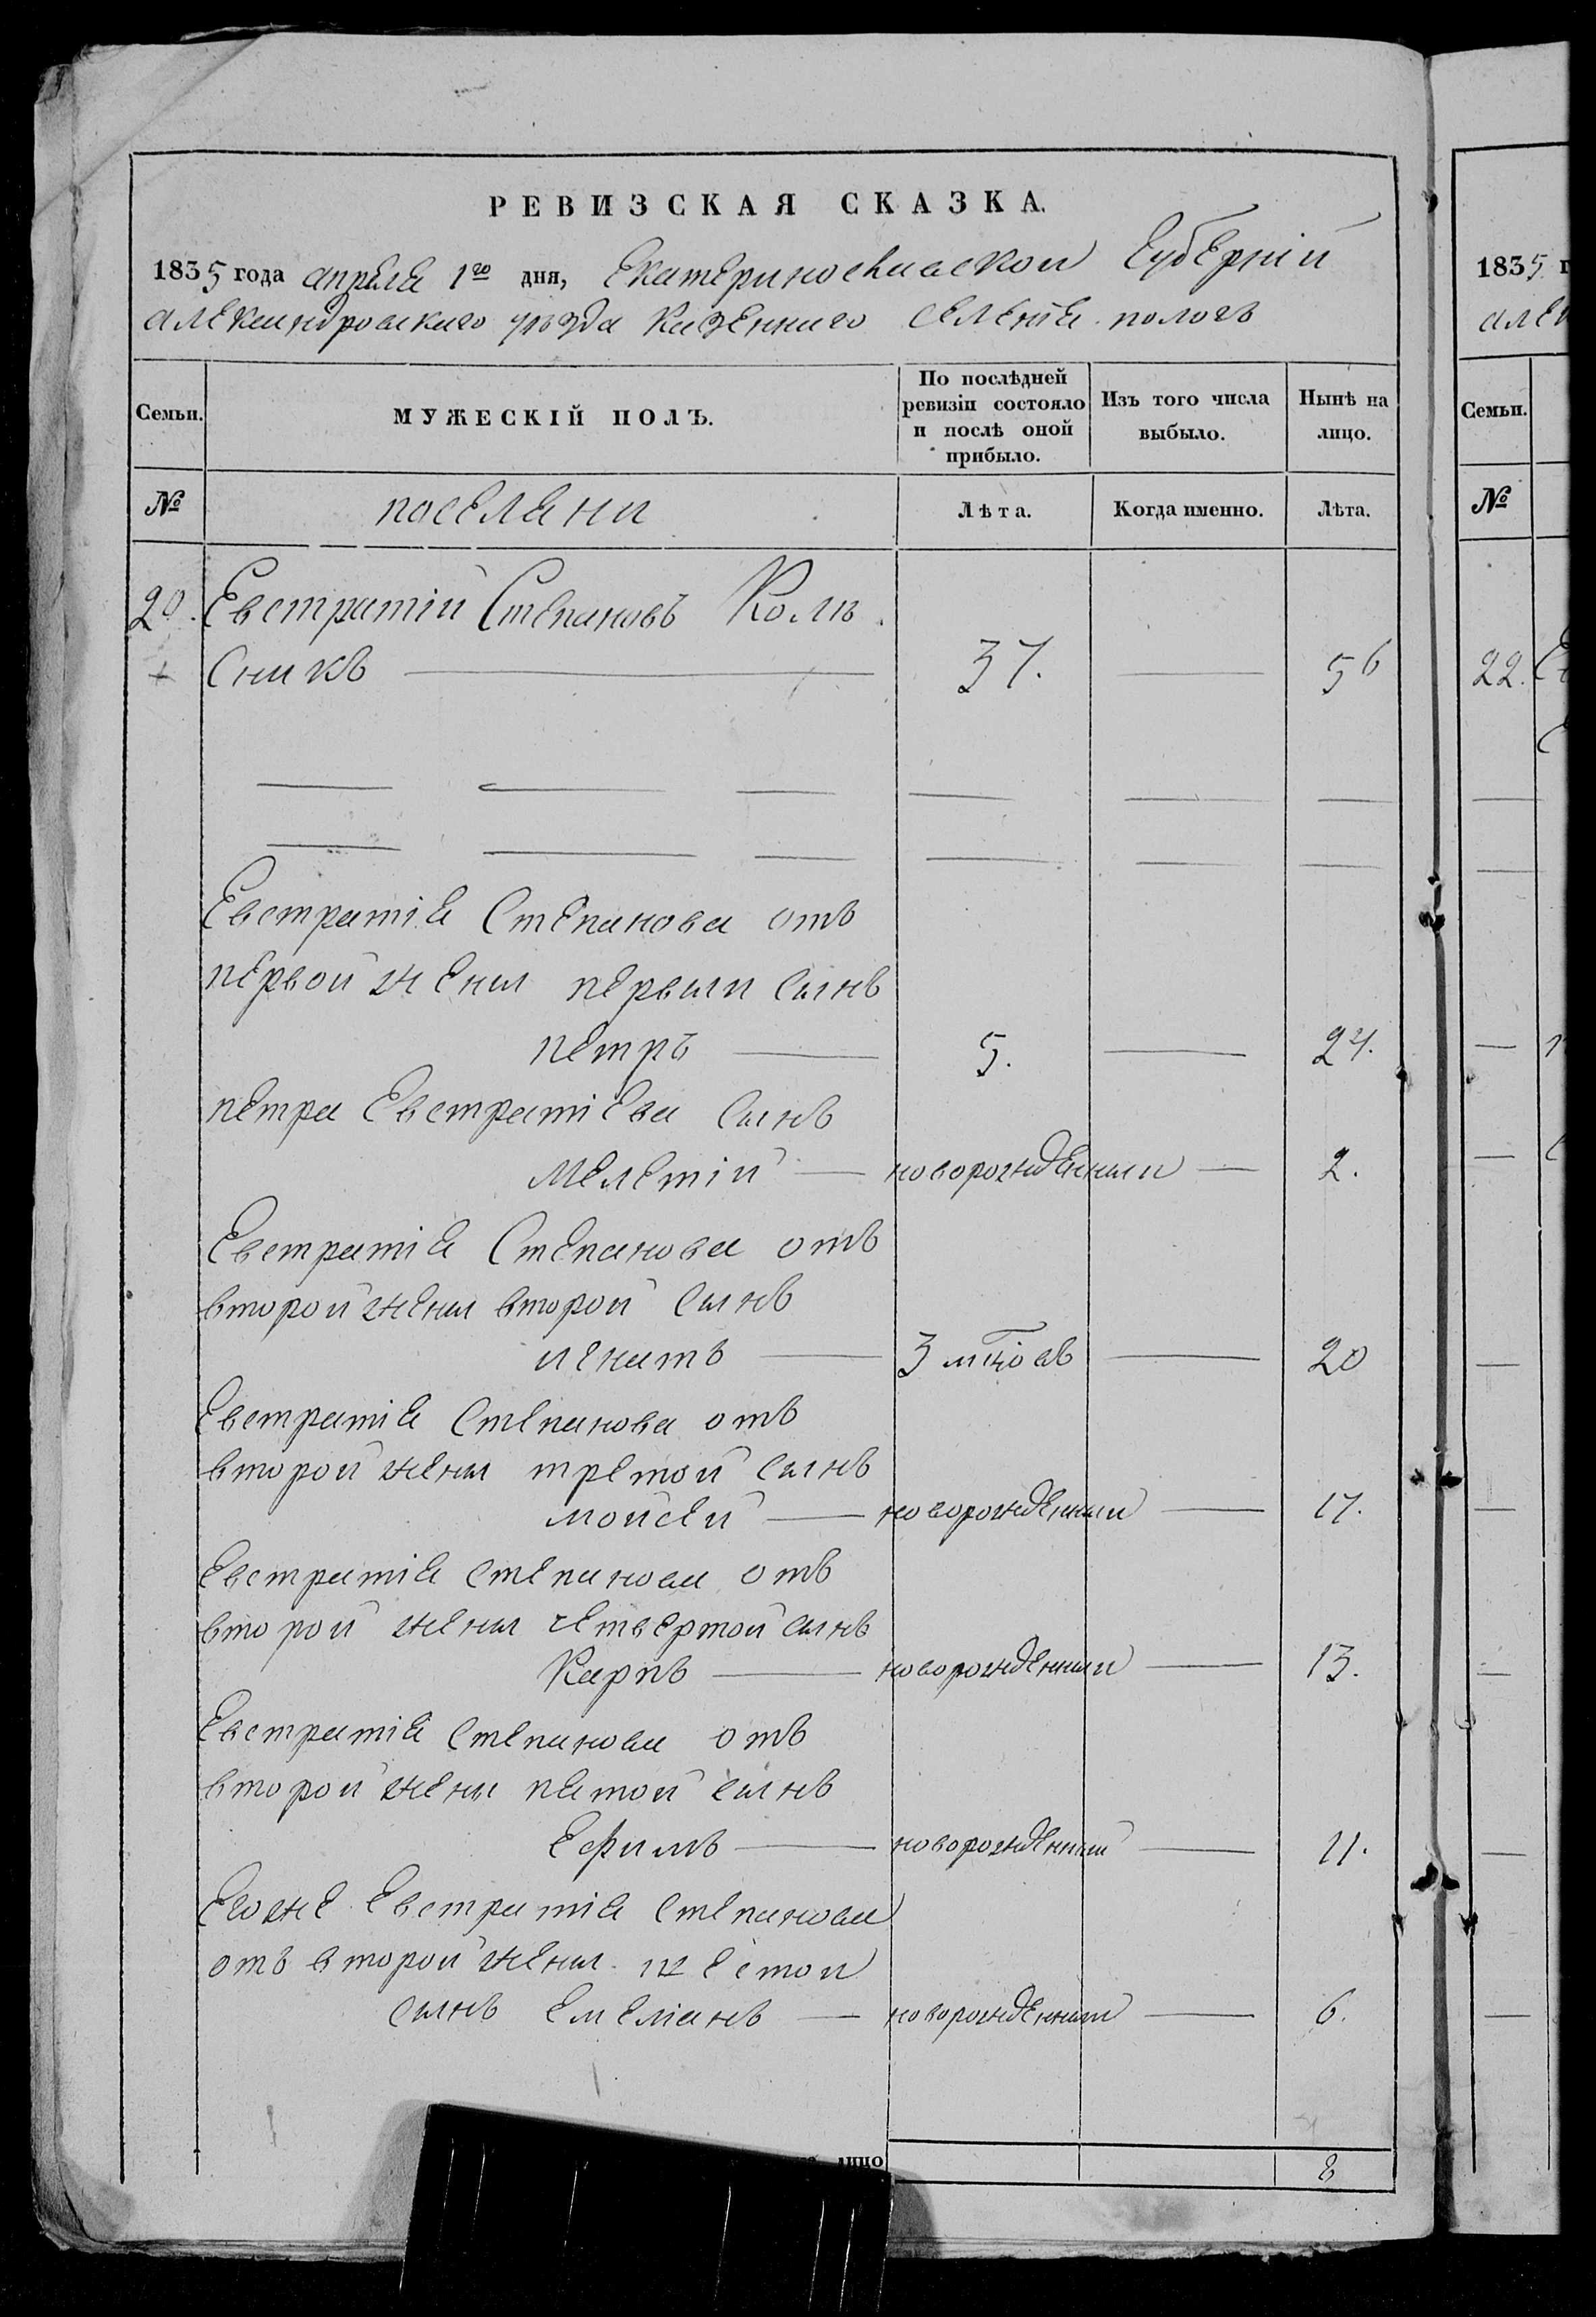 РЕВИЗСКАЯ СКАЗКА.
1835 года апреля 1го дня, Екатеринославской Губерній
александровскаго уѣзда казеннаго селенія пологъ
Семьи. МУЖЕСКІЙ ПОЛЪ. По послѣдней ревизіи состояло и послѣ оной прибыло. Изъ того числа выбыло. Нынѣ на лицо.
№ поселяни Лѣта. Когда именно. Лѣта.
20. Евстратій Степановъ Колѣ
сникъ 37. 56
Евстратія Степанова отъ
первой жены первыи сынъ
петръ 5. 24.
петра Евстратіева сынъ
мелетій новорожденныи 2.
Евстратія Степанова отъ
второй жены второй сынъ
игнатъ 3 мцовъ 20
Евстратія Степанова отъ
второй жены третой сынъ
мойсей новорожденныи 17.
Евстратія Степанова отъ
второй жены четвертой сынъ
Карпъ новорожденныи 13.
Евстратія Степанова отъ
второй жены пятой сынъ
Ефимъ новорожденный 11.
Егоже Евстратія Степанова
отъ второй жены шестои
сынъ Емеліанъ новорожденныи 6.
лицо 8
1835 г
алек
Семьи.
№
22.